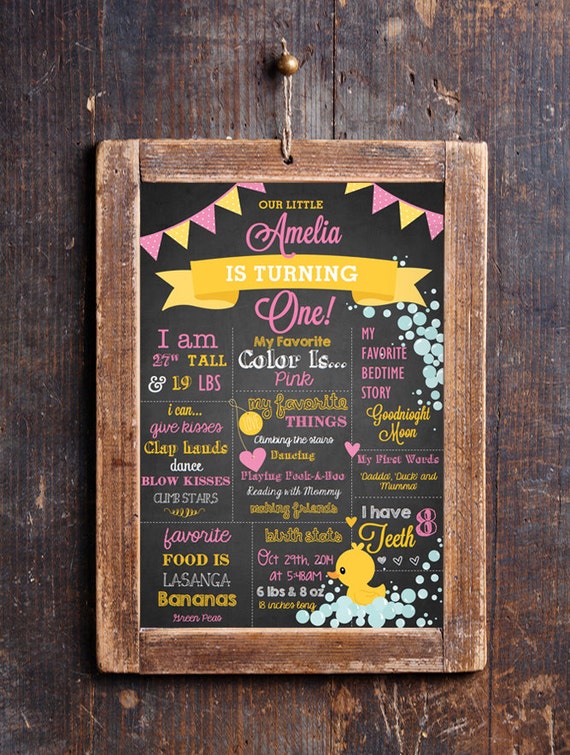 OUR LITTLE
Amelia
IS TURNING
One!
I am
27" TALL
& 19 LBS
My Favorite
Color Is...
Pink
MY
FAVORITE
BEDTIME
STORY
Goodnioght
Moon
i can...
give kisses
Clap hands
dance
BLOW KISSES
CLIMB STAIRS
my favorite
THINGS
Climbing the stairs
Dancing
Playing Peek-A-Boo
Reading with Mommy
making friends
My First Words
Dadda', Duck! and
Mumma'
I have 8
Teeth
favorite
FOOD IS
LASANGA
Bananas
Green Peas
birth stats
Oct 29th, 2014
at 5:48AM
6 lbs & 8 oz
18 inches long